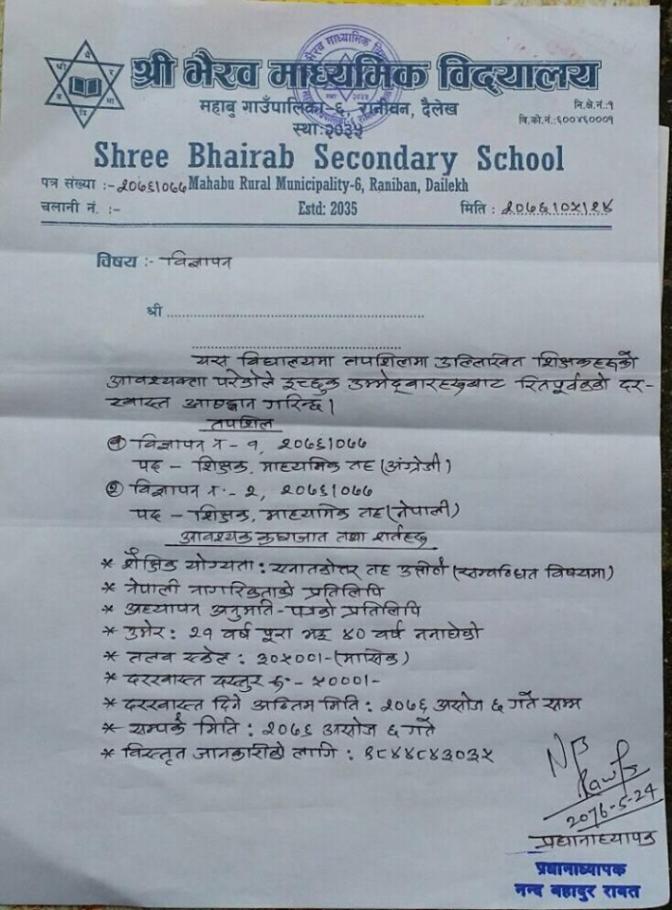 श्री भैरव माध्यमिक विद्यालय
महाबु गाउँपालिका-६, रानीवन, दैलेख
स्था: २०३५
नि.क्षे.नं.:१
वि.को.नं.:६००४६०००१
Shree Bhairab Secondary School
पत्र संख्या :- २०७६।०७७ Mahabu Rural Municipality-6, Raniban, Dailekh
चलानी नं. :- Estd: 2035 मिति : २०७६।०५।२४
विषय :- विज्ञापन
श्री
यस विद्यालयमा तपशिलमा उल्लिखित शिक्षकहरुको
आवश्यकता परेकोले इच्छुक उम्मेद्वारहरुबाट रितपूर्वकको दर-
खास्त आह्वान गरिन्छ।
तपशिल
१ विज्ञापन नं - १, २०७६।०७७
पद - शिक्षक, माध्यमिक तह (अंग्रेजी)
२ विज्ञापन नं.- २, २०७६।०७७
पद - शिक्षक, माध्यमिक तह (नेपाली)
आवश्यक कागजात तथा शर्तहरु
* शैक्षिक योग्यता : स्नातकोत्तर तह उत्तीर्ण (सम्बन्धित विषयमा)
* नेपाली नागरिकताको प्रतिलिपि
* अध्यापन अनुमति-पत्रको प्रतिलिपि
* उमेर : २१ वर्ष पूरा भइ ४० वर्ष ननाघेको
* तलब स्केल : ३०५००।-(मासिक)
* दरखास्त दस्तुर रु.- ५०००।-
* दरखास्त दिने अन्तिम मिति : २०७६ असोज ६ गते सम्म
* सम्पर्क मिति : २०७६ असोज ६ गते
* विस्तृत जानकारीको लागि : ९८४४८४३०३५
2076-5-24
प्रधानाध्यापक
प्रधानाध्यापक
नन्द बहादुर रावत